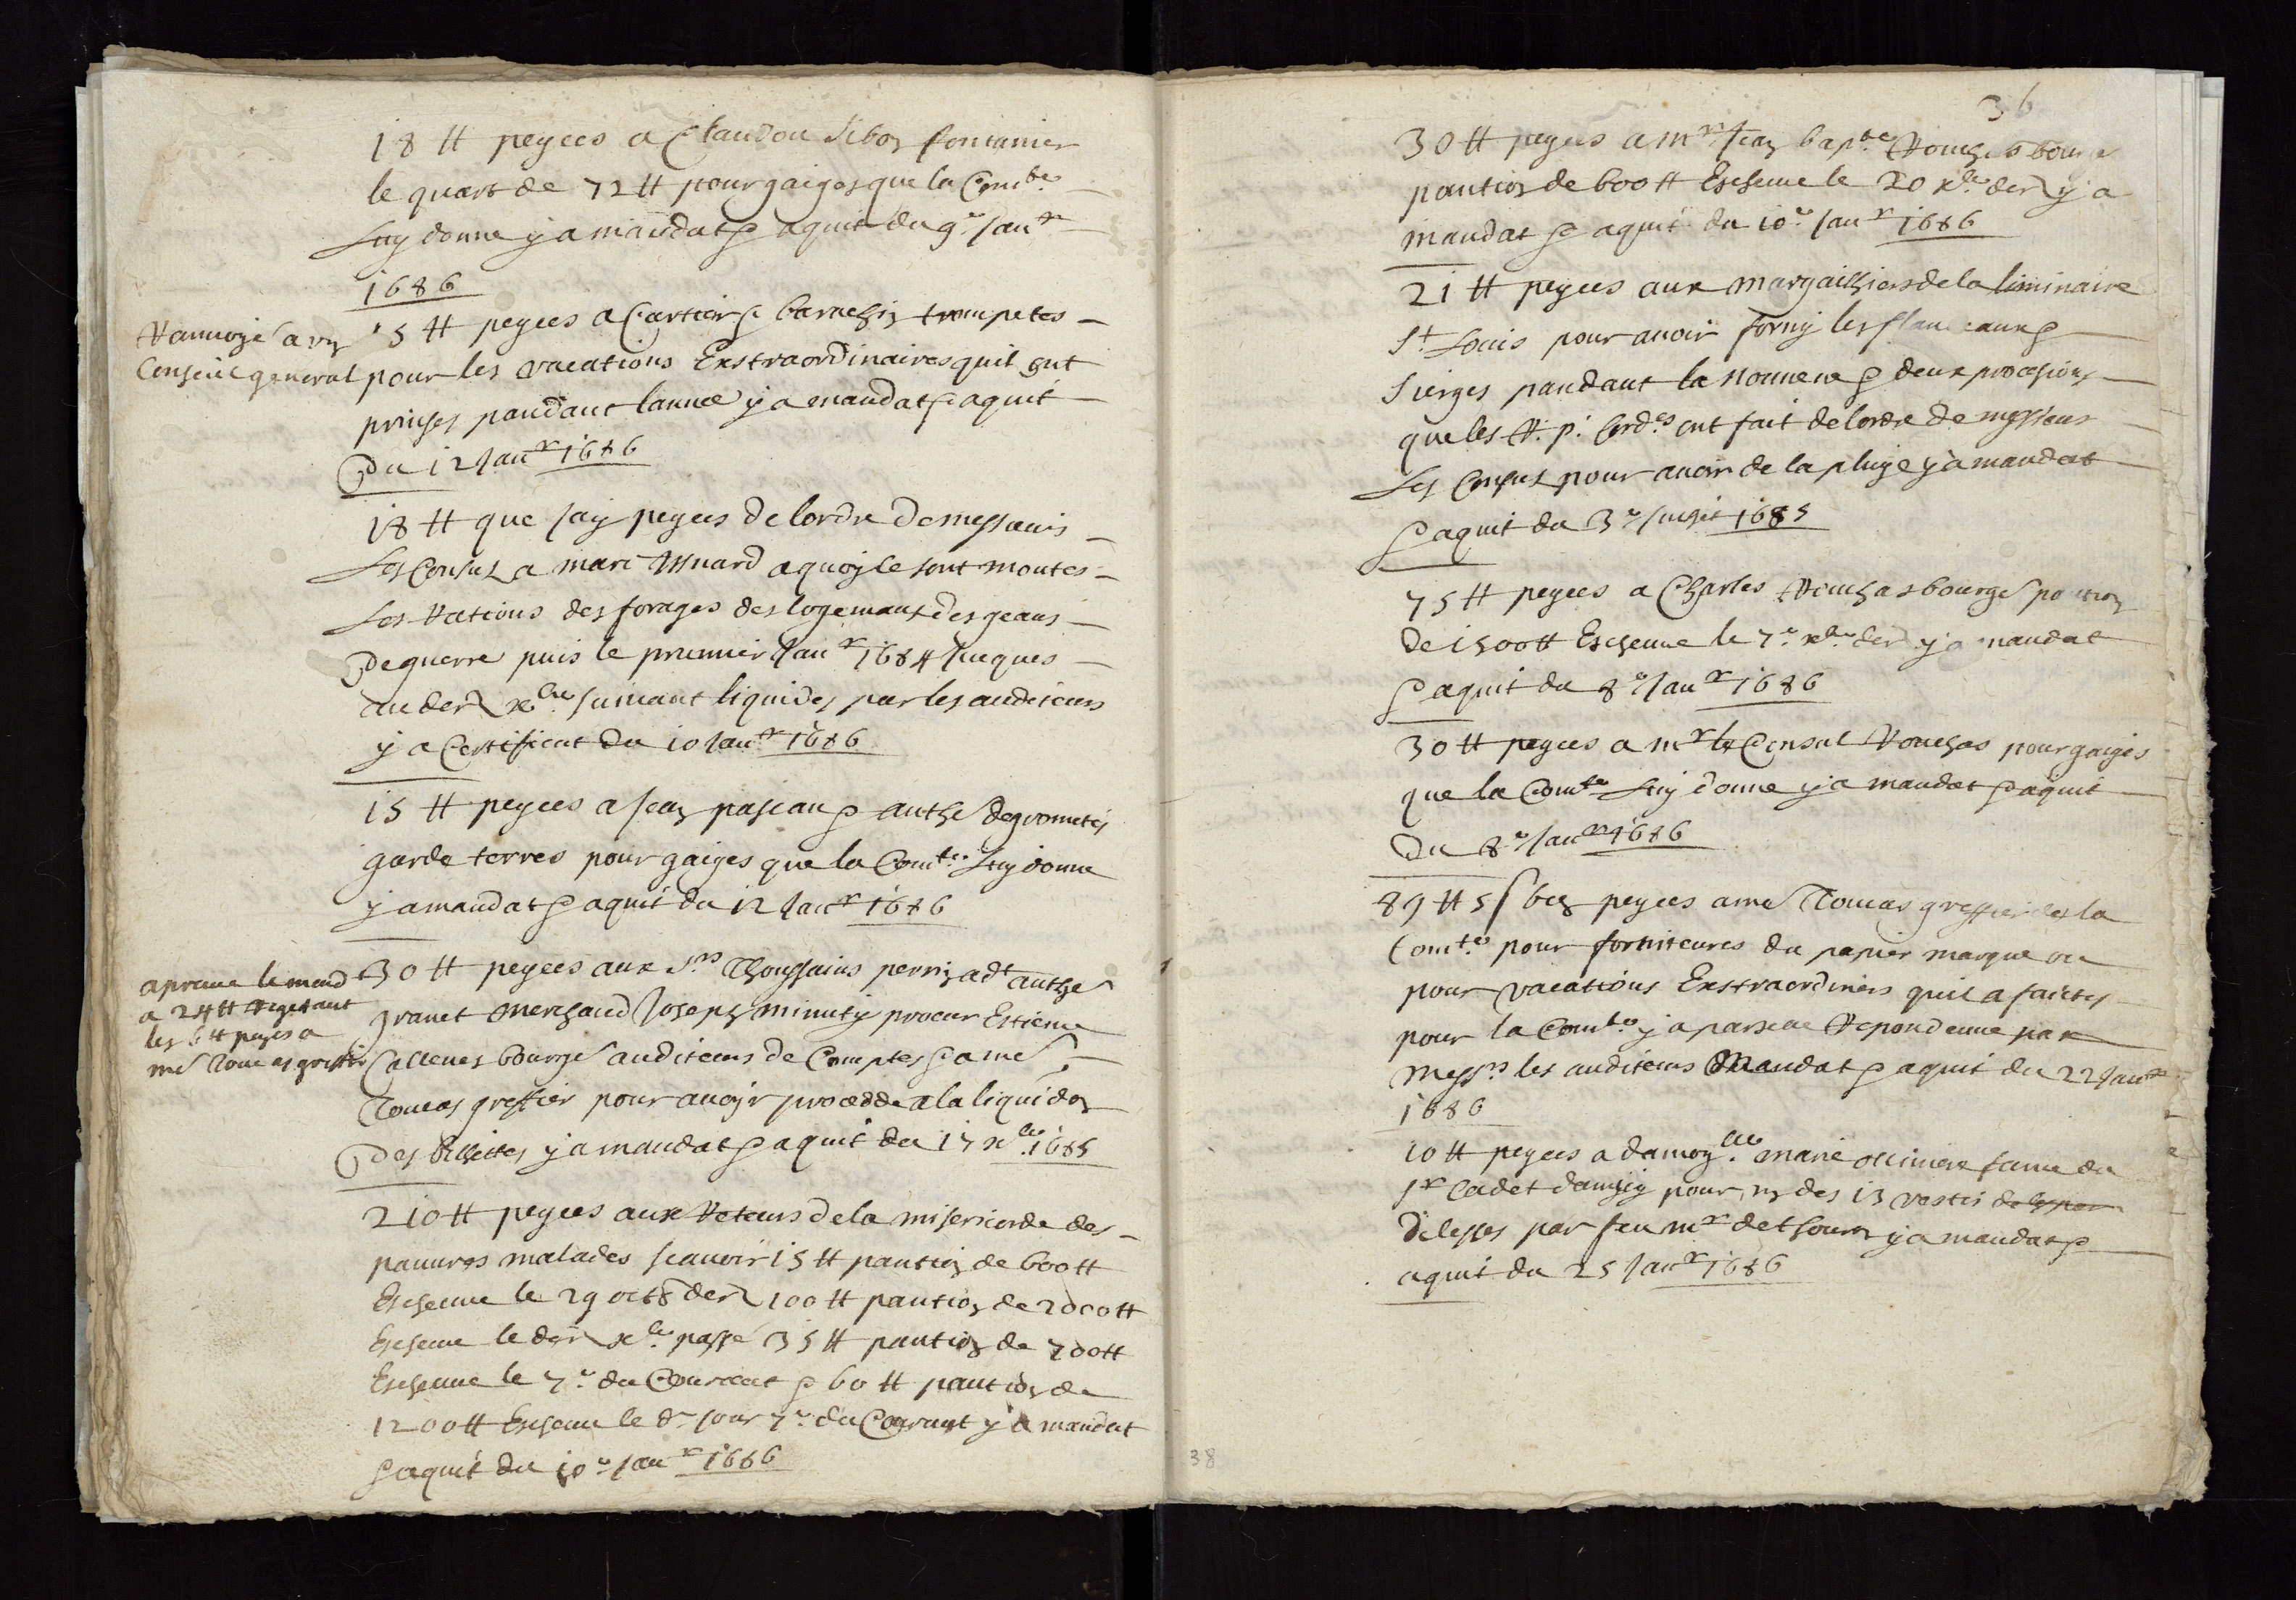 18 ₶ peyees a Claudou Sibon fontanier
le quart de 72 ₶ pour gaiges que la Comte
Luy donne y a mandat & aquit du 9e Janr
1686
Ranvoyé a un
Conseil general
15 ₶ peyees a Cartier & barachin trompetes
pour les vacations Exstraordinaires quil ont
prinses pandant lannee y a mandat & aquit
Du 12 Janr 1686
18 ₶ que Jay peyees de lordre de messeurs
Les Consuls a marc Isnard a quoy se sont montes
Les Rations des forages des logemant des geans
De guerre puis le premier Janr 1684 Jucques
au der xbre suivant liquides par les auditeurs
y a Certificat du 10 Janr 1686
15 ₶ peyees a Jean pascau & anthe
garde terres pour gaiges que la Comte Luy donne
y a mandat & aquit du 12 Janr 1686
aprouve le mand
a 24 ₶ Regetant
les 6 ₶ peyes a
me Toucas greffier
30 ₶ peyees aux srs Thoussains perrin adt anthe
granet merchand Joseph minuty procur Estiene
Callenes bourge auditeurs de Comptes & a me
Toucas greffier pour avoyr procedde a la liquidon
Des billettes y a mandat & aquit du 17 xbre 1685
210 ₶ peyees aux Reteurs de la misericorde des
pauvres malades scauoir 15 ₶ pantion de 600 ₶
Escheue le 29 octb der 100 ₶ pantion de 2000 ₶
Escheue le der xbre passe 35 ₶ pantion de 700 ₶
Escheue le 7e du Courant & 60 ₶ pantion de
1200 ₶ Escheue le d Jour 7e du Courant y a mandat
& aquit du 10e Janr 1686
36
30 ₶ peyees a mr Jean bapte Rouchas bourge
pantion de 600 ₶ Escheue le 20 xbre der y a
mandat & aquit du 10e Janr 1686
21 ₶ peyees aux margailliers de la liminaire
St Louis pour avoir forny les flambeaux &
Sierges pandant la nouvene & deux procesions
que les R. p. Cords ont fait de lordre de messieurs
Les Consuls pour avoir de la pluye y a mandat
& aquit du 3e Juillet 1685
75 ₶ peyees a Charles Rouchas bourge pantion
de 1500 ₶ Escheue le 7e xbre der y a mandat
& aquit du 8e Janr 1686
30 ₶ peyees a mr le Consul Rouchas pour gaiges
que la Comte Luy donne y a mandat & aquit
Du 8e Janr 1686
89 ₶ 5 s peyees a me Toucas greffier de la
Comte pour fornitures du papier marque ou
pour vacations Exstraordineres quil a faictes
pour la Comte y a parselle Repondeue par
Messrs les auditeurs Mandat & aquit du 22 Janr
1686
10 ₶ peyees a damoyle marie femme du
sr Cadet pour un des 13 vestis
delesses par feu mr de Thouron y a mandat &
aquit du 25 Janr 1686
38